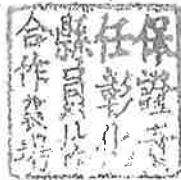 保證責
任彰化
縣員
合作農場